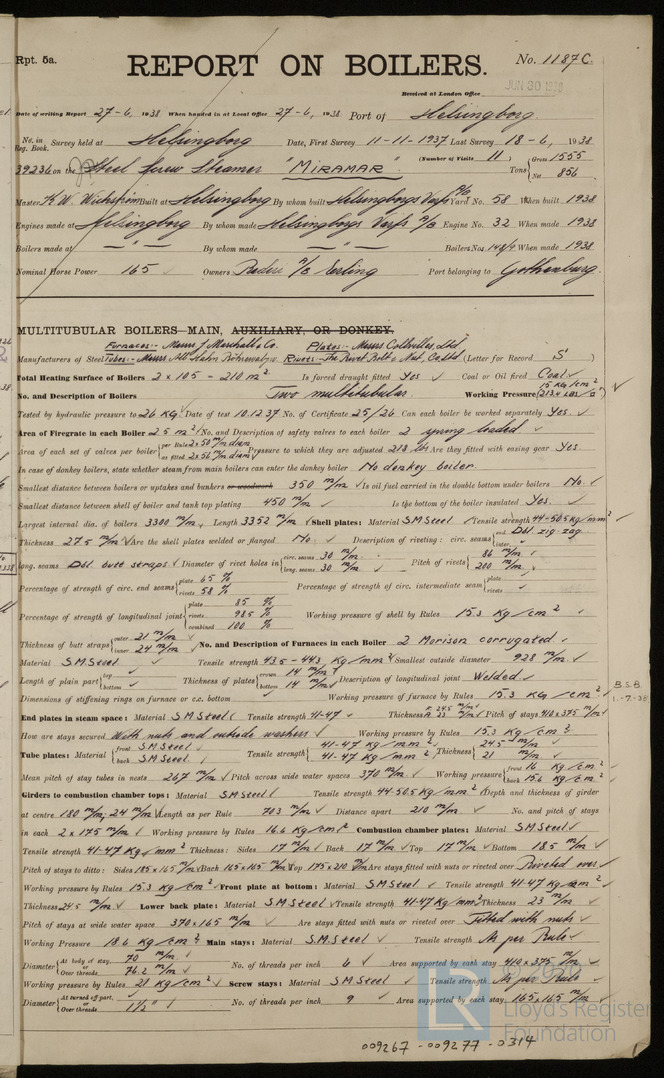 Rpt. 5a. REPORT ON BOILERS. No. 1187C.
Received at London Office JUN 30 1938
Date of writing Report 27-6, 1938 When handed in at Local Office 27-6, 1938 Port of Helsingborg
No. in Reg. Book. Survey held at Helsingborg Date, First Survey 11-11-1937 Last Survey 18-6, 1938
39236 on the Steel Screw Steamer "MIRAMAR" (Number of Visits 11) Tons Gross 1555 Net 856
Master K.W. Built at Helsingborg By whom built Helsingborgs Varfs A/B Yard No. 58 When built 1938
Engines made at Helsingborg By whom made Helsingborgs Varfs A/B Engine No. 32 When made 1938
Boilers made at — " — By whom made — " — Boiler No. 148/9 When made 1938
Nominal Horse Power 165 Owners Rederi A/B Port belonging to Gothenburg
MULTITUBULAR BOILERS—MAIN, AUXILIARY, OR DONKEY.
Furnaces:- Messrs J Marshall & Co. Plates:- Messrs Colvilles Ltd
Manufacturers of Steel Tubes:- Messrs Rivets:- The Rivet Bolt & Nut Co Ltd (Letter for Record S)
Total Heating Surface of Boilers 2 x 105 - 210 m² Is forced draught fitted Yes Coal or Oil fired Coal
No. and Description of Boilers Two multitubular Working Pressure 15 KG/cm² (213.4 LBS/□")
Tested by hydraulic pressure to 26 KG. Date of test 10.12.37 No. of Certificate 25/26 Can each boiler be worked separately Yes.
Area of Firegrate in each Boiler 2.5 m² No. and Description of safety valves to each boiler 2 spring loaded.
Area of each set of valves per boiler per Rule 2x50 m/m diam as fitted 2x56 m/m diam Pressure to which they are adjusted 213 lbs Are they fitted with easing gear Yes
In case of donkey boilers, state whether steam from main boilers can enter the donkey boiler No donkey boiler.
Smallest distance between boilers or uptakes and bunkers or woodwork 350 m/m Is oil fuel carried in the double bottom under boilers No.
Smallest distance between shell of boiler and tank top plating 450 m/m Is the bottom of the boiler insulated Yes.
Largest internal dia. of boilers 3300 m/m Length 3352 m/m Shell plates: Material SM Steel Tensile strength 44-50.5 kg/mm²
Thickness 27.5 m/m Are the shell plates welded or flanged No Description of riveting: circ. seams end Dbl. zig-zag inter.
long. seams Dbl. butt straps Diameter of rivet holes in circ. seams 30 m/m long. seams 30 m/m Pitch of rivets 86 m/m 200 m/m
Percentage of strength of circ. end seams plate 65 % rivets 58 % Percentage of strength of circ. intermediate seam plate rivets
Percentage of strength of longitudinal joint plate 85 % rivets 98.5 % combined 100 % Working pressure of shell by Rules 15.3 Kg/cm²
Thickness of butt straps outer 21 m/m inner 24 m/m No. and Description of Furnaces in each Boiler 2 Morison corrugated
Material S.M. Steel Tensile strength 43.5-44.3 Kg/mm² Smallest outside diameter 928 m/m.
Length of plain part top bottom Thickness of plates crown 14 m/m bottom 14 m/m Description of longitudinal joint Welded
Dimensions of stiffening rings on furnace or c.c. bottom Working pressure of furnace by Rules 15.3 KG/cm²
B.S.B. 1-7-38
End plates in steam space: Material S M Steel Tensile strength 41-47 Thickness 24.5 m/m 23 m/m Pitch of stays 410x375 m/m
How are stays secured With nuts and outside washers Working pressure by Rules 15.3 Kg/cm²
Tube plates: Material front S.M. Steel back S.M. Steel Tensile strength 41-47 Kg/mm² 41-47 Kg/mm² Thickness 24.5 m/m 21 m/m
Mean pitch of stay tubes in nests 267 m/m Pitch across wide water spaces 370 m/m Working pressure front 16 Kg/cm² back 15.6 Kg/cm²
Girders to combustion chamber tops: Material S.M. Steel Tensile strength 44-50.5 kg/mm² Depth and thickness of girder
at centre 180 m/m; 24 m/m Length as per Rule 703 m/m Distance apart 210 m/m No. and pitch of stays
in each 2 x 175 m/m Working pressure by Rules 16.6 Kg/cm² Combustion chamber plates: Material S.M. Steel
Tensile strength 41-47 Kg/mm² Thickness: Sides 17 m/m Back 17 m/m Top 17 m/m Bottom 18.5 m/m
Pitch of stays to ditto: Sides 185x165 m/m Back 165x165 m/m Top 175x210 m/m Are stays fitted with nuts or riveted over Riveted over
Working pressure by Rules 15.3 Kg/cm² Front plate at bottom: Material S.M. Steel Tensile strength 41-47 Kg/mm²
Thickness 24.5 m/m Lower back plate: Material S M Steel Tensile strength 41-47 Kg/mm² Thickness 23 m/m
Pitch of stays at wide water space 370x165 m/m Are stays fitted with nuts or riveted over Fitted with nuts
Working Pressure 18.6 Kg/cm² Main stays: Material S.M. Steel Tensile strength As per Rule
Diameter At body of stay, 70 m/m Over threads 76.2 m/m No. of threads per inch 6 Area supported by each stay 410x375 m/m
Working pressure by Rules 21 Kg/cm² Screw stays: Material S M Steel Tensile strength As per Rule
Diameter At turned off part, or Over threads 1½" No. of threads per inch 9 Area supported by each stay 165x165 m/m
LR Lloyd's Register Foundation
009267-009277-0314